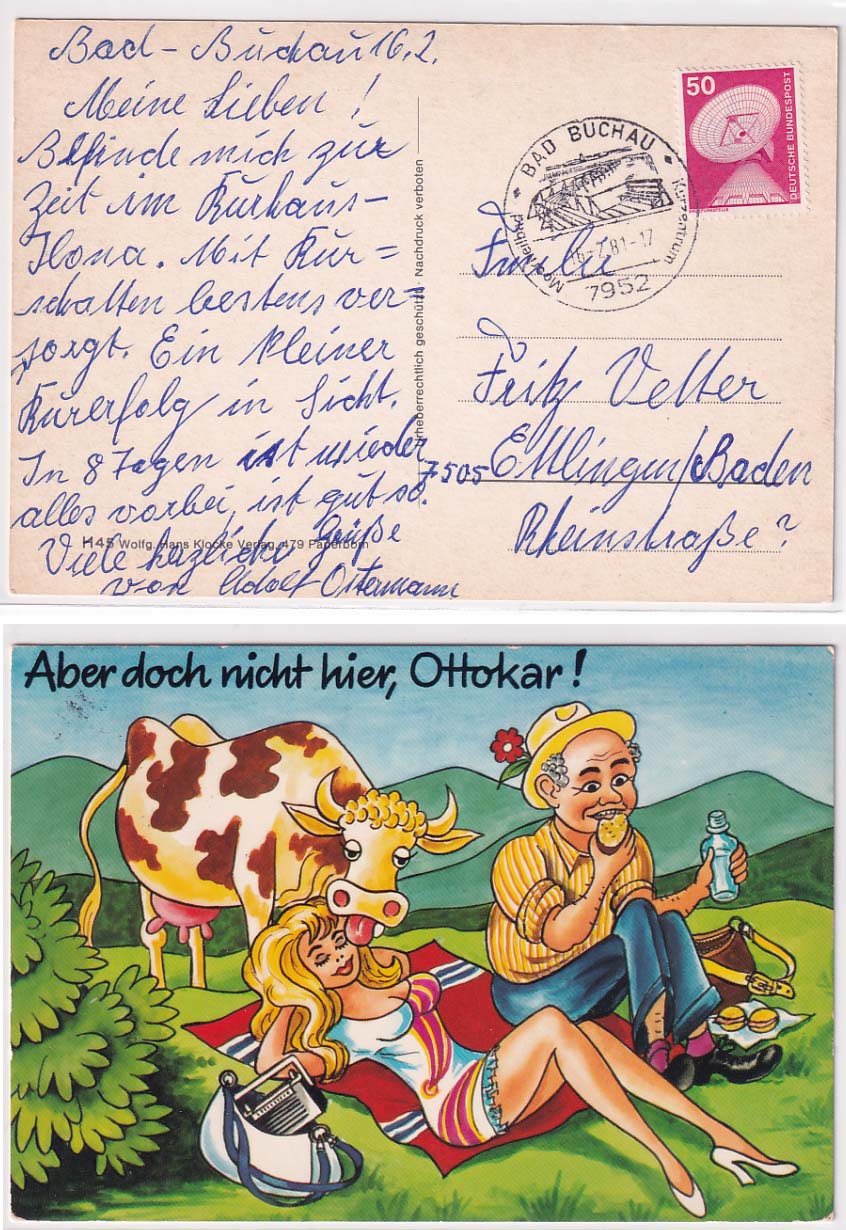 Bad - Buchau 16.2.
Meine Lieben!
Befinde mich zur
Zeit im Kurhaus-
Ilona. Mit Kur=
schatten bestens ver=
sorgt. Ein kleiner
Kurerfolg in Sicht.
In 8 Tagen ist wieder
alles vorbei, ist gut so.
Viele herzliche Grüße
von Adolf Ostermann
H45 Wolfg. Hans Klocke Verlag, 479 Paderborn
Urheberrechtlich geschützt · Nachdruck verboten
BAD BUCHAU
Moorheilbad
Kurzentrum
81-17
7952
50
DEUTSCHE BUNDESPOST
ERDEFUNKSTELLE
Familie
Fritz Velter
7505 Ettlingen/Baden
Rheinstraße?
Aber doch nicht hier, Ottokar!